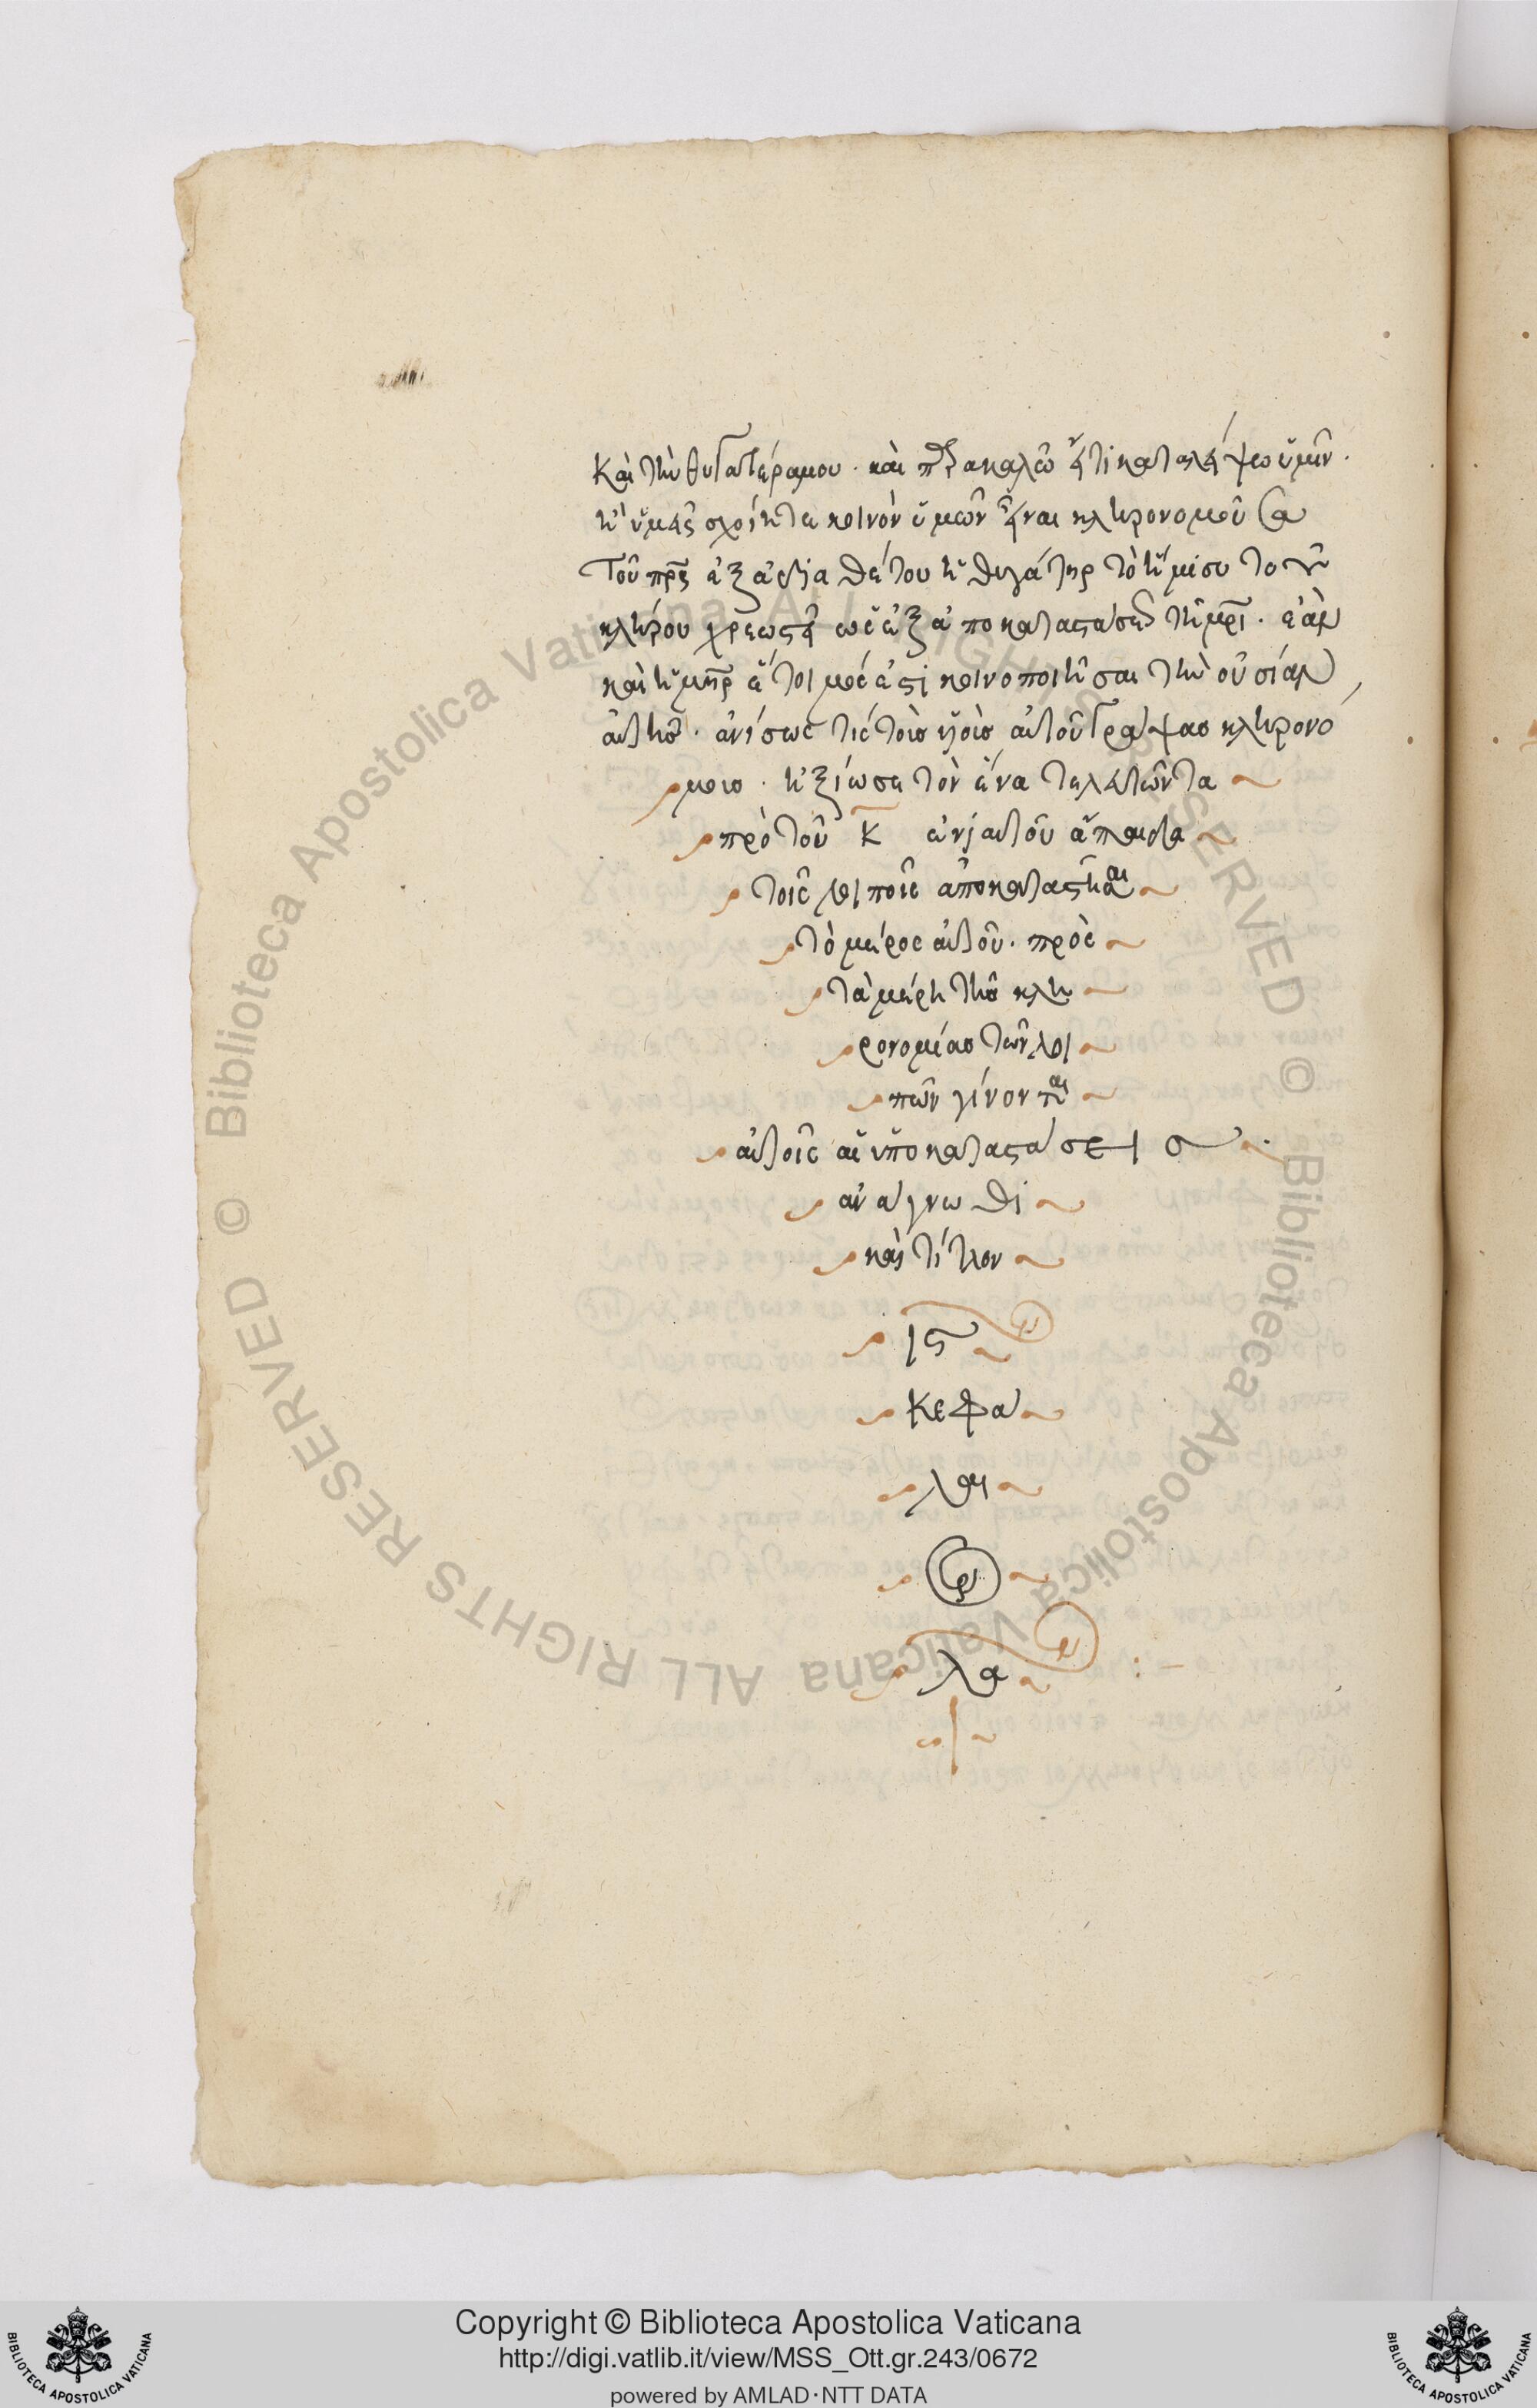 καὶ τὴν θυγατέραμου. καὶ παρακαλῶ εἴτι καταλείψω ὑμῖν.
ἢ ὑμεῖς σχοίητε κοινὸν ὑμῶν εἶναι κληρονομοῦσα
τοῦ πρς ἐξ ἀδιαθέτου ἡ θυγάτηρ τὸ ἥμισυ τοῦ
κλήρου χρεωστεῖ ἐξ ἀποκαταστάσεως τῇ μρι. ἐὰν
καὶ ἡ μηρ ἕτοιμός ἐστι κοινοποιῆσαι τὴν οὐσίαν
αὐτῆς. ἀνίσως τίς τοὺς υἱοὺς αὐτοῦ γράψας κληρονό
μους. ἠξίωσε τὸν ἕνα τελευτῶντα
πρὸ τοῦ κ ἐνιαυτοῦ ἄπαιδα
τοῖς λοιποῖς ἀποκαταστῆσαι
τὸ μέρος αὐτοῦ. πρὸς
τὰ μέρη τῆς κλη
ρονομίας τῶν λοι
πῶν γίνονται
αὐτοῖς αἱ ὑποκαταστάσεις.
ἀνάγνωθι
καὶ τίτλον
ις
κεφά
λαι
ον
λα
Copyright © Biblioteca Apostolica Vaticana
http://digi.vatlib.it/view/MSS_Ott.gr.243/0672
powered by AMLAD·NTT DATA
BIBLIOTECA APOSTOLICA VATICANA
BIBLIOTECA APOSTOLICA VATICANA
© Biblioteca Apostolica Vaticana ALL RIGHTS RESERVED © Biblioteca Apostolica Vaticana ALL RIGHTS RESERVED